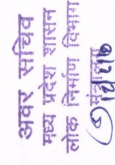 अवर सचिव
मध्य प्रदेश शासन
लोक निर्माण विभाग
मंत्रालय